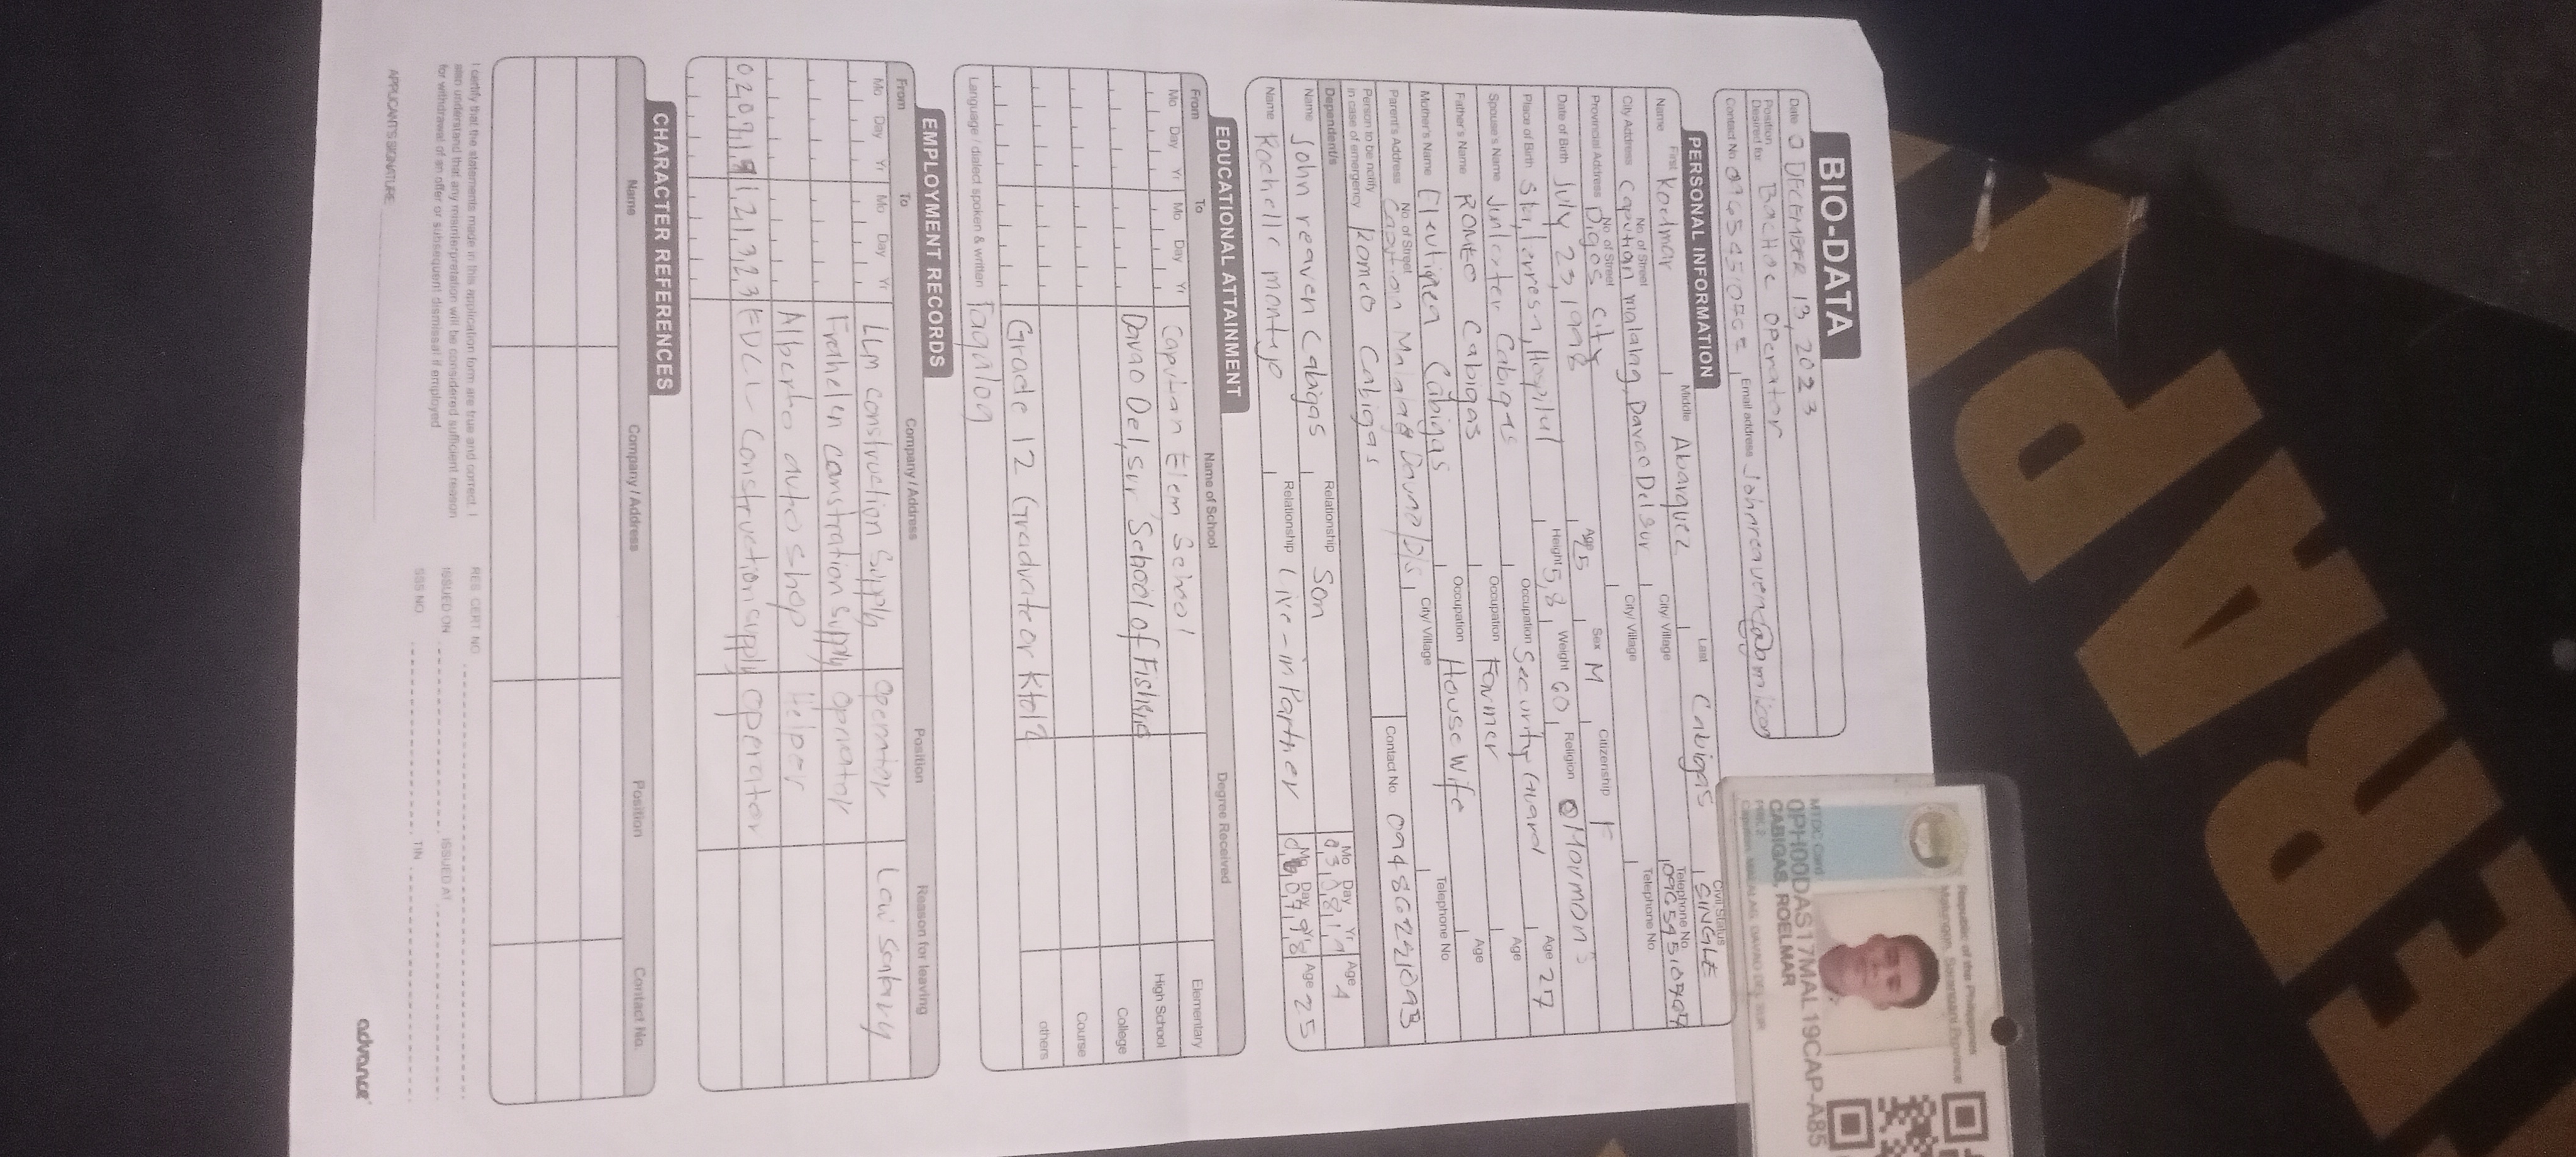 BIO-DATA
Date DECEMBER 13, 2023
Position Desired for Bachoe operator
Contact No. Email address
PERSONAL INFORMATION
Name First Roelmar Middle Abarquez Last Cabigas Civil Status SINGLE
City Address No. of Street Caputian malalag, Davao Del sur City/ Village Telephone No.
Provincial Address No. of Street Digos city City/ Village Telephone No.
Date of Birth July 23, 1998 Age 25 Sex M Citizenship F
Place of Birth Hospital Height 5,8 Weight 60 Religion Mormons
Spouse's Name Cabigas Occupation Security Guard Age 27
Father's Name ROMEO Cabigas Occupation Farmer Age
Mother's Name Cabigas Occupation House Wife Age
Parent's Address No. of Street Caputian Malalag City/ Village Telephone No.
Person to be notify in case of emergency Romeo Cabigas Contact No.
Dependent/s
Name John reaven Cabigas Relationship Son Mo Day Yr Age 4
Name Rochelle montejo Relationship Live-in Partner Mo Day Yr Age 25
EDUCATIONAL ATTAINMENT
From To Name of School Degree Received
Mo Day Yr Mo Day Yr Caputian Elem School Elementary
Davao Del,sur School of Fishing High School
College
Course
Grade 12 Graduate or Kto12 others
Language / dialect spoken & written Tagalog
EMPLOYMENT RECORDS
From To Company/Address Position Reason for leaving
Mo Day Yr Mo Day Yr LLM construction Supply operator Low Salary
supply operator
Alberto auto shop Helper
Construction supply operator
CHARACTER REFERENCES
Name Company / Address Position Contact No.
I certify that the statements made in this application form are true and correct. I
also understand that any misinterpretation will be considered sufficient reason
for withdrawal of an offer or subsequent dismissal if employed
RES. CERT. NO.
ISSUED ON ISSUED AT
SSS NO. TIN
APPLICANT'S SIGNATURE
advance
Republic of the Philippines
Malungon, Sarangani Province
MTDC Card
0PH00DAS17MAL19CAP-A85
CABIGAS, ROELMAR
PRK 2
Caputian, MALALAG, DAVAO DEL SUR